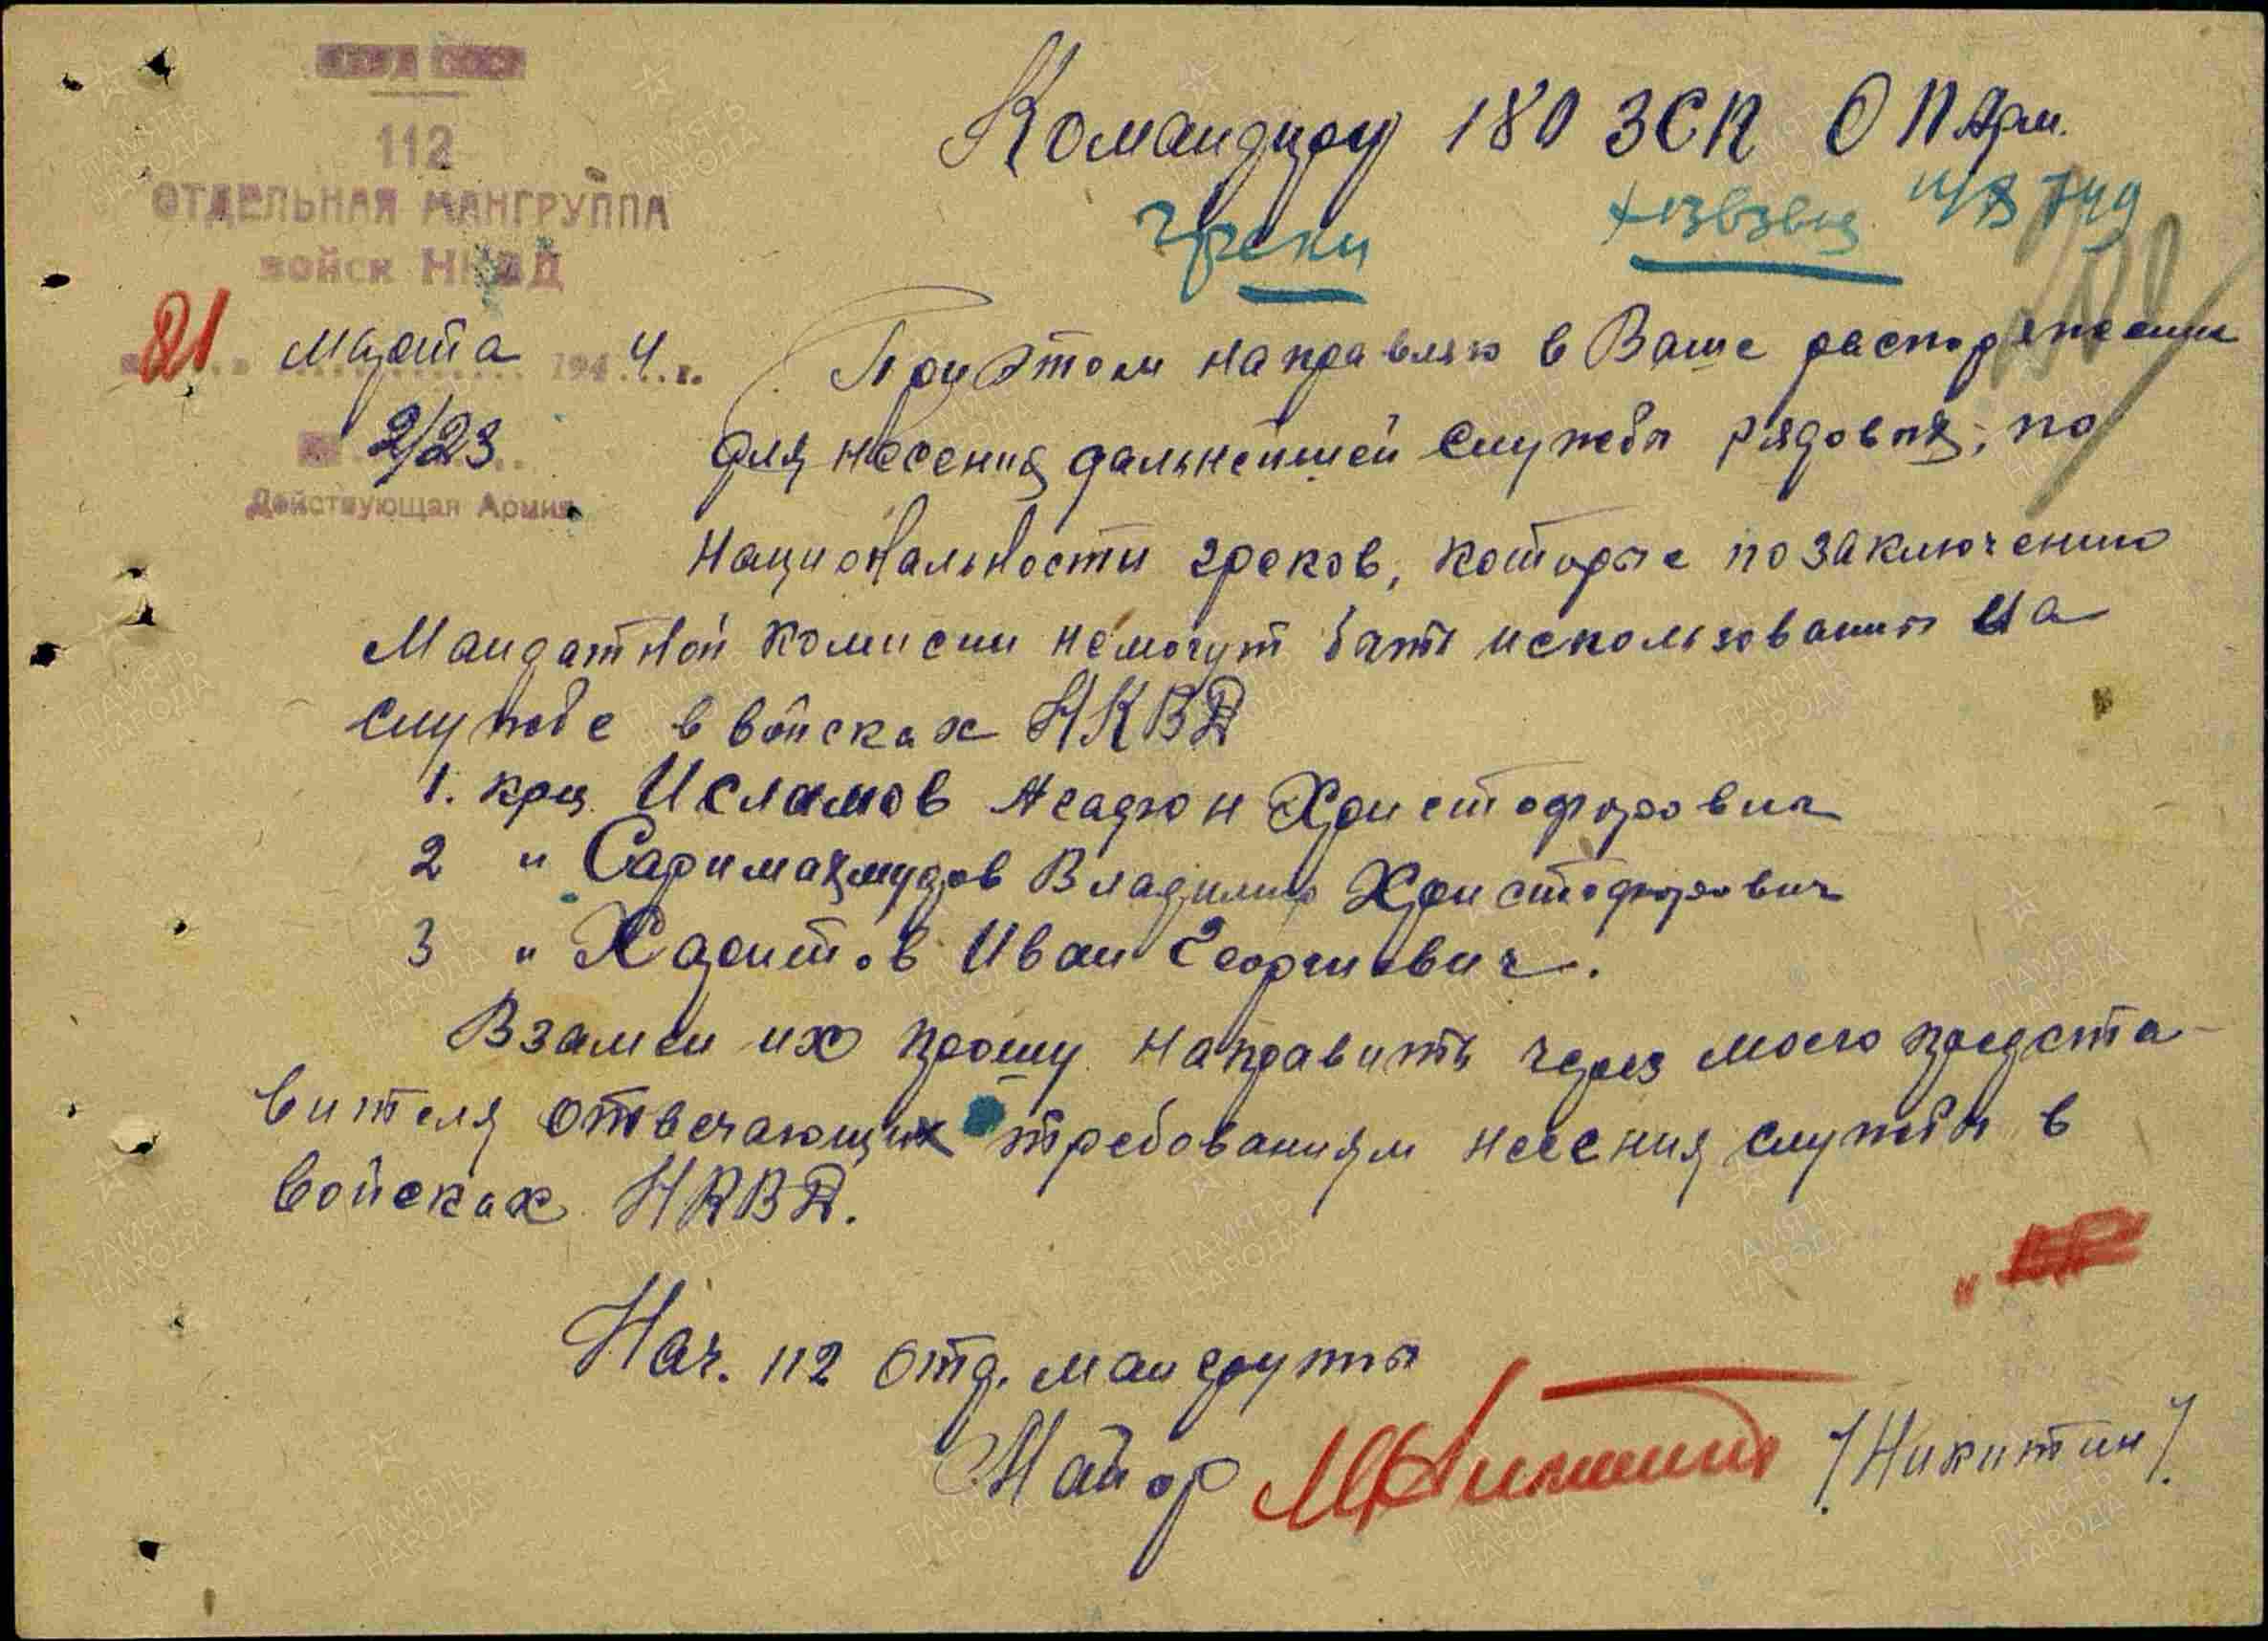 НКВД СССР
112
ОТДЕЛЬНАЯ МАНГРУППА
войск НКВД
21 марта 1944 г.
2/23
Действующая Армия
Командиру 180 ЗСП 0 11 Арм.
греки
При этом направляю в Ваше распоряжение
для несения дальнейшей службы рядовых, по
национальности греков, которые по заключению
Мандатной комиссии немогут быть использованы на
службе в войсках НКВД
1. кр-ц Исламов Асадюн Христофорович
2 " Саримахмудов Владимир Христофорович
3 " Харитов Иван Георгиевич.
Взамен их прошу направить через моего предста-
вителя отвечающих требованиям несения службы в
войсках НКВД.
Нач. 112 отд. мангруппы
Майор /Никитин/
ПАМЯТЬ НАРОДА